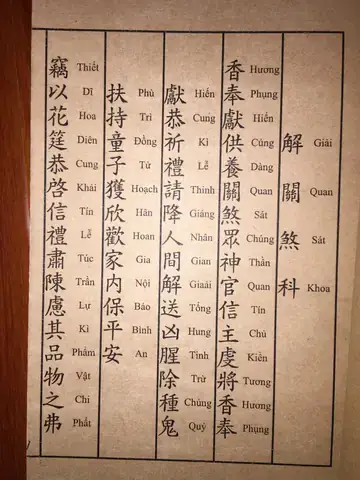 解關煞科
Giải Quan Sát Khoa
香奉獻供養關煞眾神官信主虔將香奉
Hương Phụng Hiến Cúng Dàng Quan Sát Chúng Thần Quan Tín Chủ Kiền Tương Hương Phụng
獻恭祈禮請降人間解送凶腥除種鬼
Hiến Cung Kì Lễ Thỉnh Giáng Nhân Gian Giaải Tống Hung Tinh Trừ Chủng Quỷ
扶持童子獲欣歡家内保平安
Phù Trì Đồng Tử Hoạch Hân Hoan Gia Nội Bảo Bình An
竊以花筵恭啓信禮肅陳慮其品物之弗
Thiết Dĩ Hoa Diên Cung Khải Tín Lễ Túc Trần Lự Kì Phẩm Vật Chi Phất